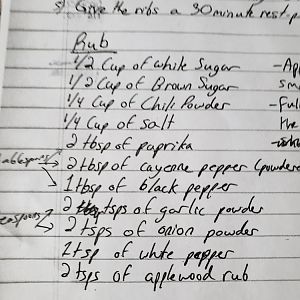 5) Give the ribs a 30 minute rest-p
Rub
1/2 Cup of white Sugar
1/2 Cup of Brown Sugar
1/4 Cup of Chili Powder
1/4 Cup of Salt
2 tbsp of paprika
2 tbsp of cayenne pepper (powdere
1 tbsp of black pepper
2 tsps of garlic powder
2 tsps of onion powder
1 tsp of white pepper
2 tsps of applewood rub
-Ap
sm
-Ful
the